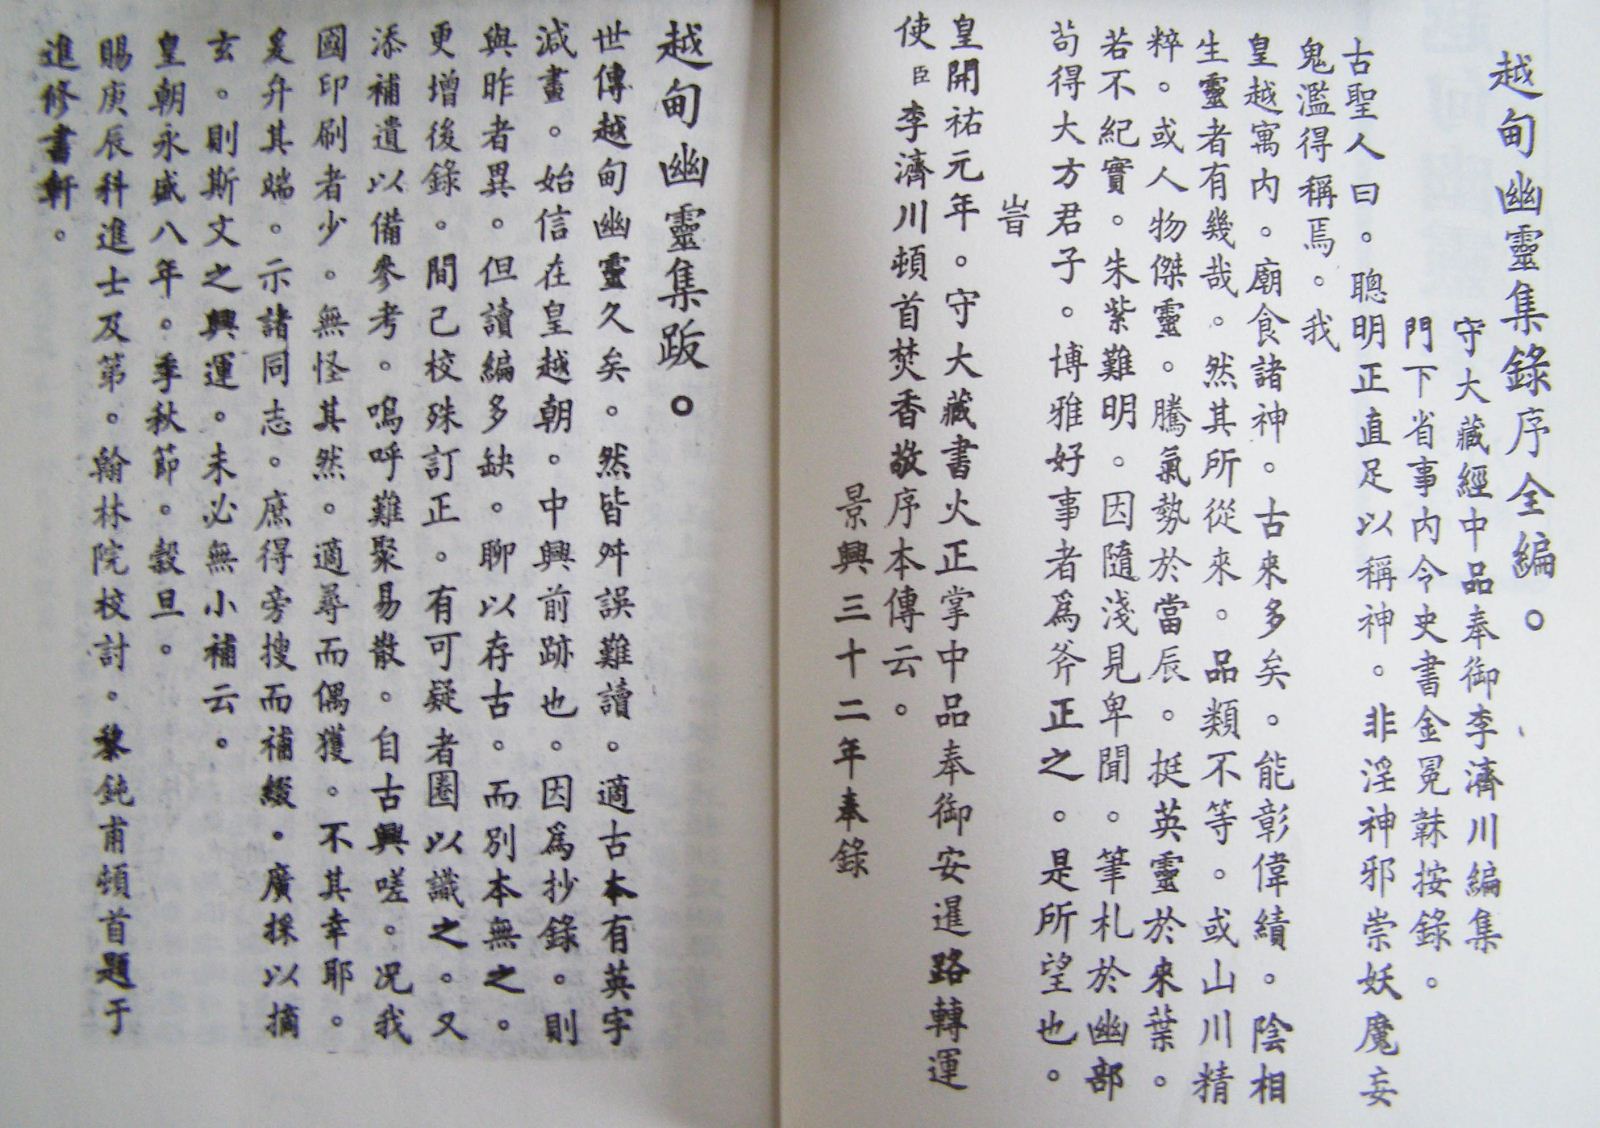 越甸幽靈集錄序全編。
守大藏經中品奉御李濟川編集
門下省事內令史書金冕韎按錄。
古聖人曰。聰明正直足以稱神。非淫神邪崇妖魔妄
鬼濫得稱焉。我
皇越寓內。廟食諸神。古來多矣。能彰偉績。陰相
生靈者有幾哉。然其所從來。品類不等。或山川精
粹。或人物傑靈。騰氣勢於當辰。挺英靈於來葉。
若不紀實。朱紫難明。因隨淺見卑聞。筆札於幽部
苟得大方君子。博雅好事者爲斧正之。是所望也。
旹
皇開祐元年。守大藏書火正掌中品奉御安暹路轉運
使臣李濟川頓首焚香敬序本傳云。
景興三十二年奉錄
越甸幽靈集跋。
世傳越甸幽靈久矣。然皆舛誤難讀。適古本有英字
減畫。始信在皇越朝。中興前跡也。因爲抄錄。則
與昨者異。但讀編多缺。聊以存古。而別本無之。
更增後錄。間己校殊訂正。有可疑者圈以識之。又
添補遺以備參考。嗚呼難聚易散。自古興嗟。况我
國印刷者少。無怪其然。適尋而偶獲。不其幸耶。
爰弁其端。示諸同志。庶得旁搜而補綴。廣採以摘
玄。則斯文之興運。未必無小補云。
皇朝永盛八年。季秋節。穀旦。
賜庚辰科進士及第。翰林院校討。黎鈍甫頓首題于
進修書軒。